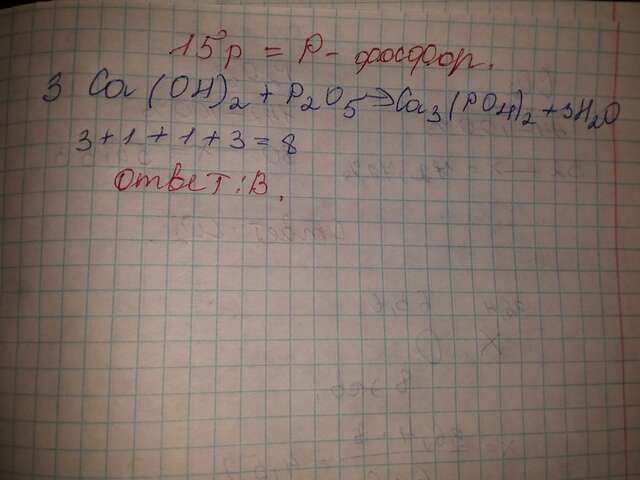 15p = P - фосфор.
3 Ca(OH)2 + P2O5 → Ca3(PO4)2 + 3H2O
3 + 1 + 1 + 3 = 8
Ответ: В.